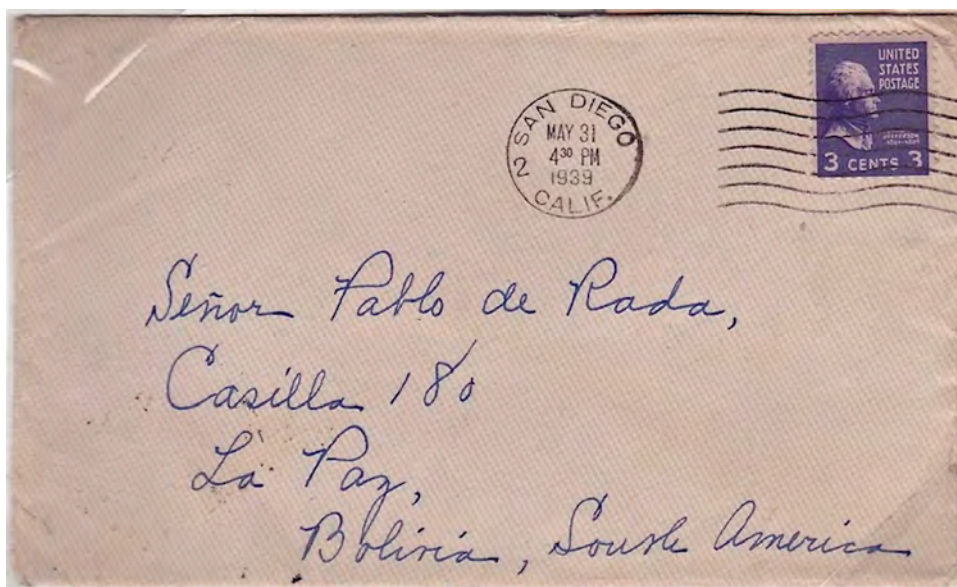 UNITED
STATES
POSTAGE
3 CENTS 3
SAN DIEGO
MAY 31
4³⁰ PM
1939
2
CALIF.
Señor Pablo de Rada,
Casilla 180
La Paz,
Bolivia, South America